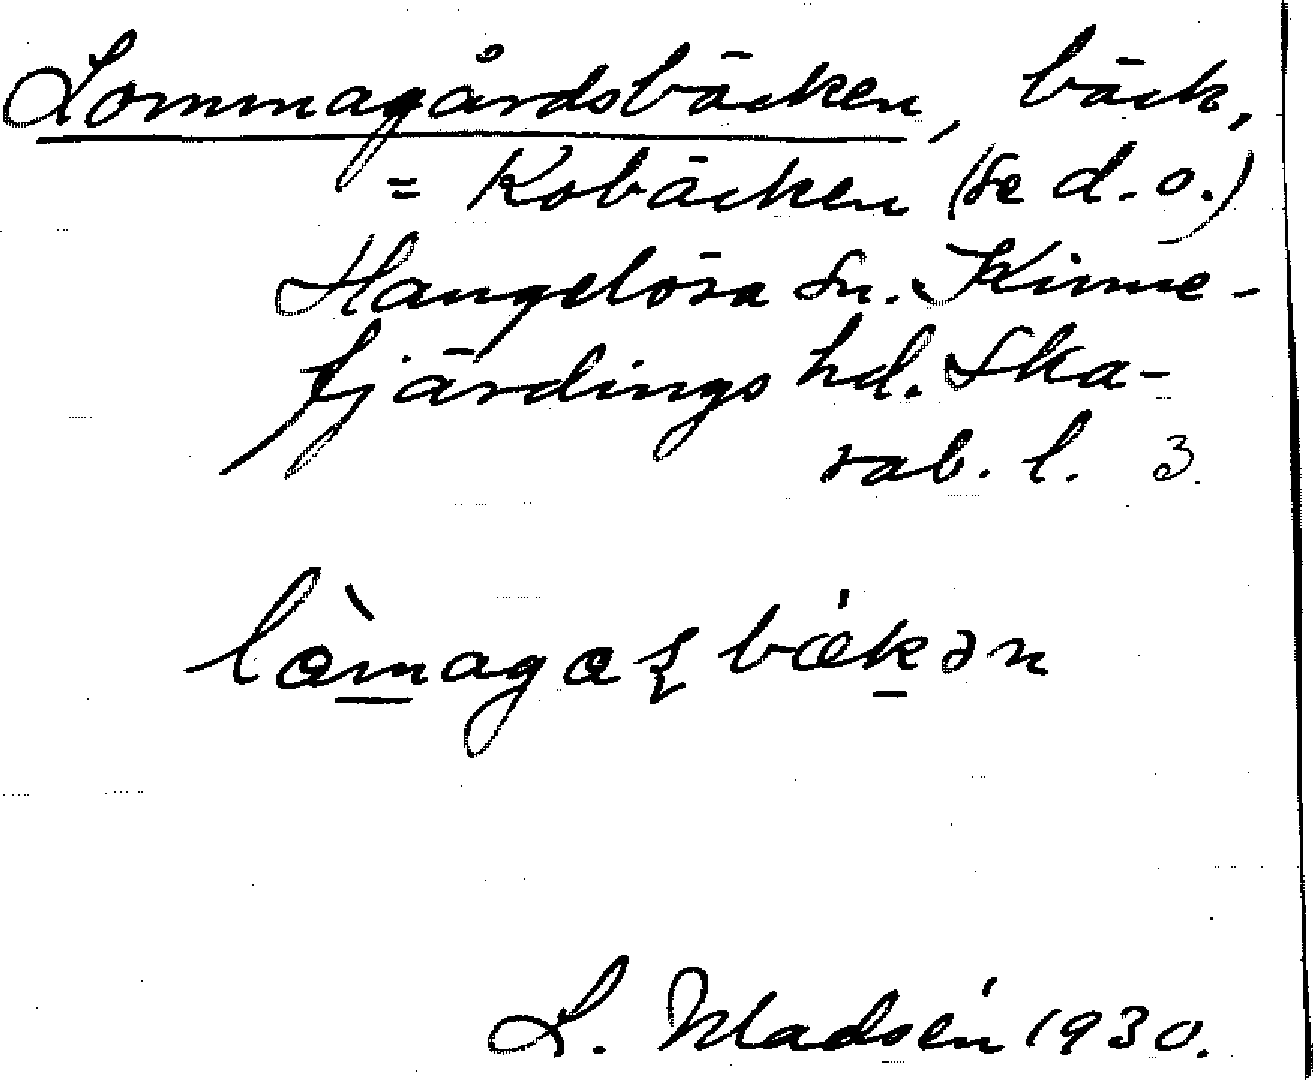 Lommagårdsbäcken, bäck,
= Kobäcken (se d. o.)
Hangelösa sn. Kinne-
fjärdings hd. Ska-
rab. l. 3.
L. Madsén 1930.